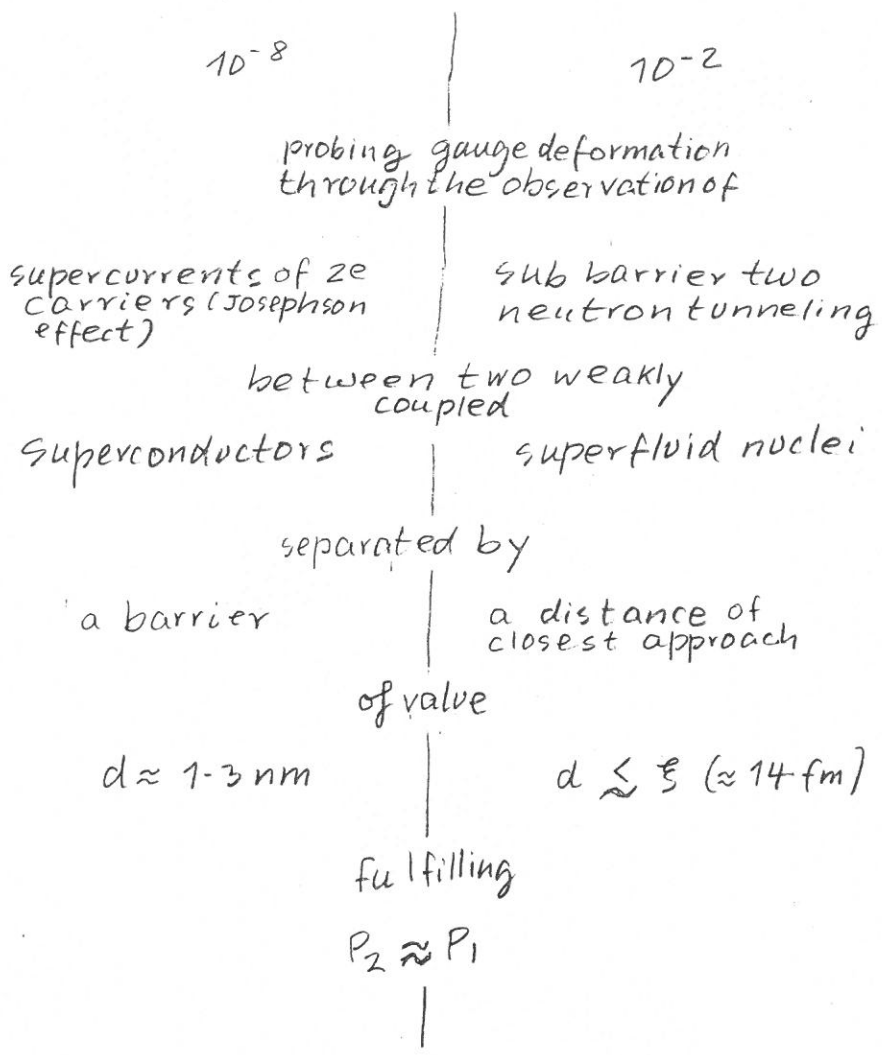 10⁻⁸ 10⁻²
probing gauge deformation
through the observation of
supercurrents of 2e
carriers (Josephson
effect)
sub barrier two
neutron tunneling
between two weakly
coupled
superconductors superfluid nuclei
separated by
a barrier
a distance of
closest approach
of value
d ≈ 1-3 nm d ≲ ξ (≈ 14 fm)
fulfilling
P₂ ≈ P₁